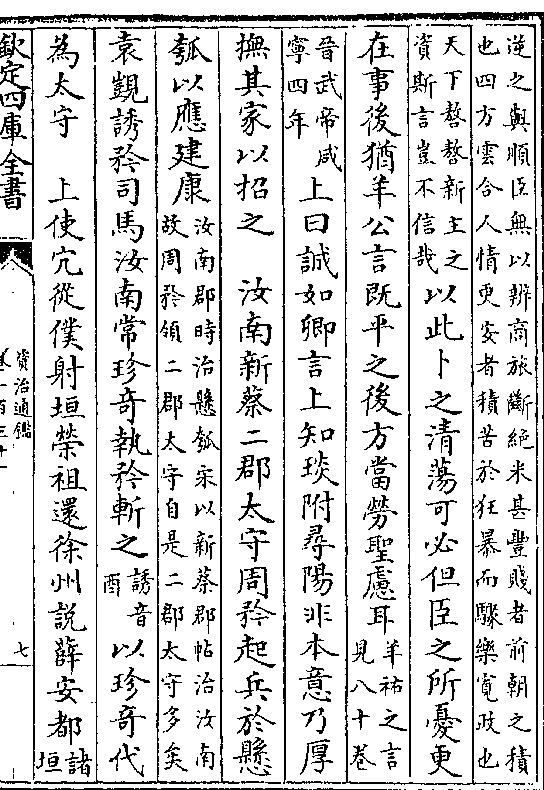 逆之與順臣無以辨商旅斷絶米甚豐賤者前朝之積
也四方雲合人情更安者積苦於狂暴而驟樂寛政也
天下嗸嗸新主之
資斯言豈不信哉以此卜之清蕩可必但臣之所憂更
在事後猶羊公言既平之後方當勞聖慮耳羊祜之言
見八十卷
晉武帝咸
寧四年上曰誠如卿言上知琰附尋陽非本意乃厚
撫其家以招之 汝南新蔡二郡太守周矜起兵於懸
瓠以應建康汝南郡時治懸瓠宋以新蔡郡帖治汝南
故周矜領二郡太守自是二郡太守多矣
袁覬誘矜司馬汝南常珍奇執矜斬之誘音
酉以珍奇代
為太守 上使宂從僕射垣榮祖還徐州説薛安都諸
垣
欽定四庫全書
資治通鑑
卷一百三十一
七